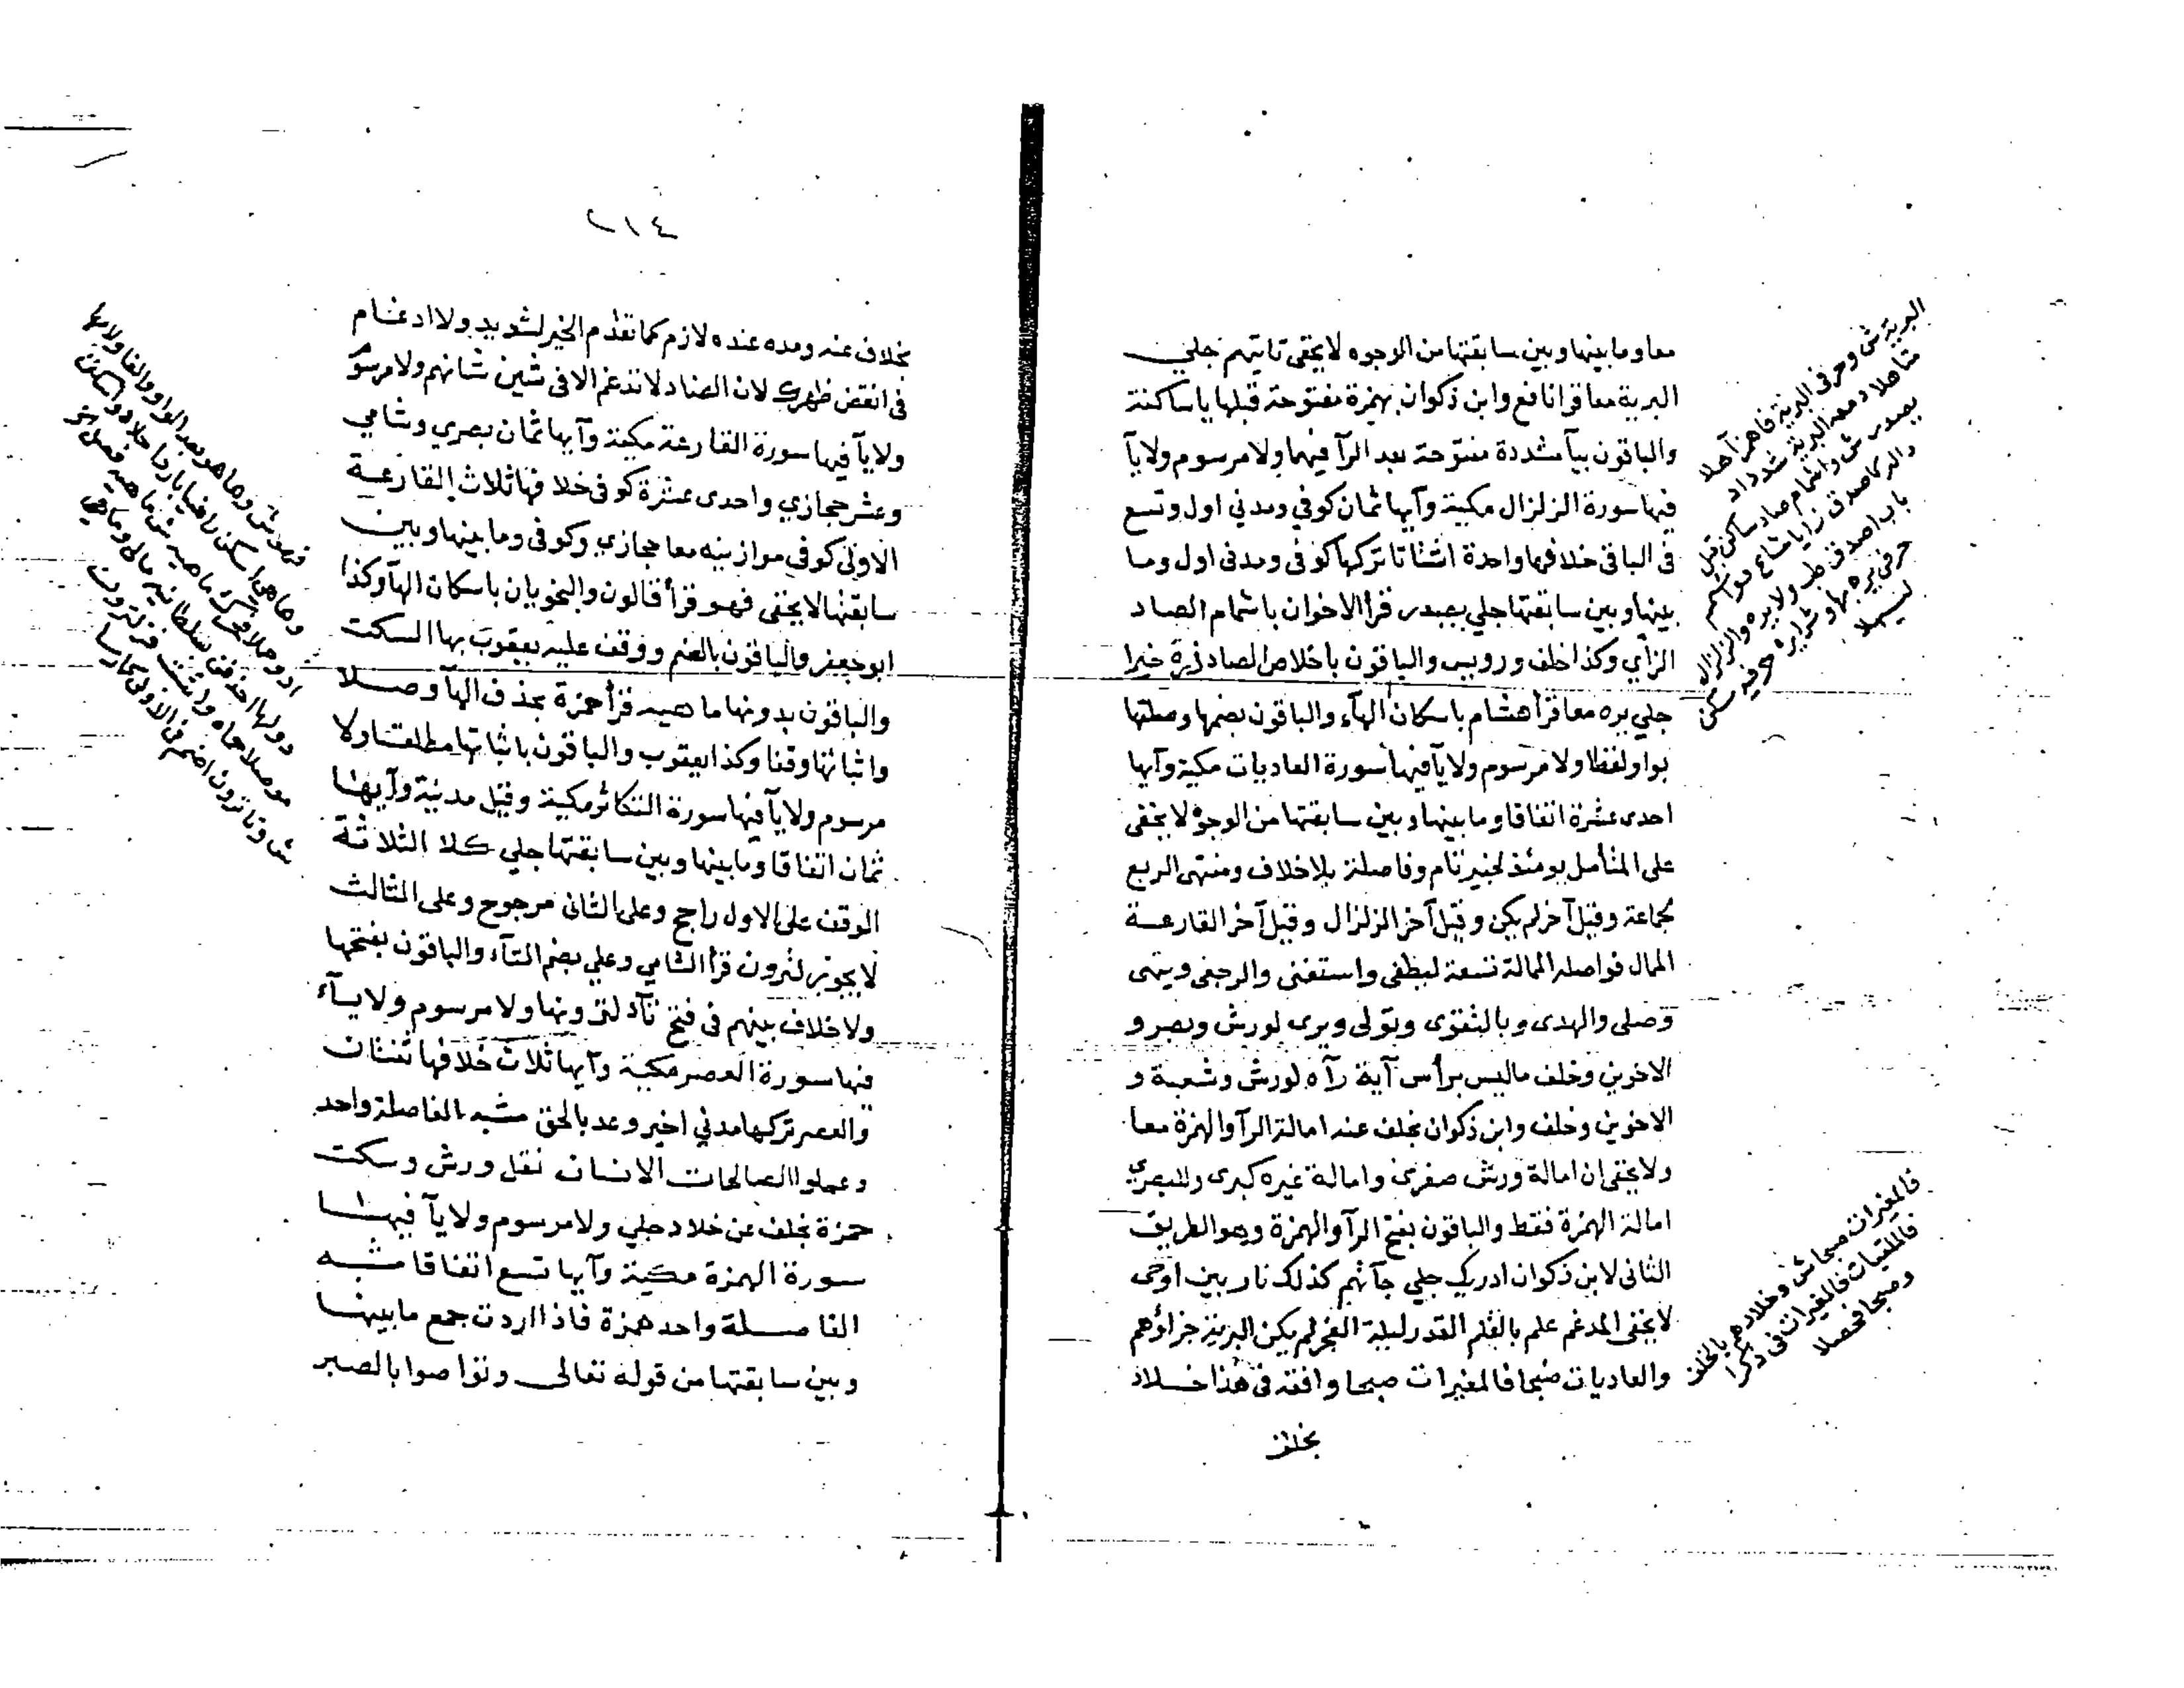 معا وما بينها وبين سابقتها من الوجوه لا يخفى تاتيهم جلي
البرية معا قرا نافع وابن ذكوان بهمزة مفتوحة قبلها يا ساكنة
والباقون بيآ مشددة مفتوحة بعد الرآ فيهما ولا مرسوم ولا يآ
فيها سورة الزلزال مكية وآيها ثمان كوفي ومدني اول وتسع
في الباقي خلافها واحدة اشتاتا تركها كوفي ومدني اول وما
بينها وبين سابقتها جلي يصدر قرأ الاخوان باشمام الصاد
الزأي وكذا خلف ورويس والباقون باخلاص الصاد ذرة خيرا
جلي يره معا قرأ هشام باسكان الهآء والباقون بضمها وصلتها
بواو لفظا ولا مرسوم ولا يآ فيها سورة العاديات مكية وآيها
احدى عشرة اتفاقا وما بينها وبين سابقتها من الوجوه لا يخفى
على المتأمل يومئذ لخبير تام وفاصلة بلا خلاف ومنتهى الربع
لجماعة وقيل آخر لم يكن وقيل آخر الزلزال وقيل آخر القارعة
الممال فواصله الممالة تسعة ليطغى واستغنى والرجعى وينهى
وصلى والهدى وبالتقوى وتولى ويرى لورش وبصر و
الاخوين وخلف ما ليس برأس آية رآه لورش وشعبة و
الاخوين وخلف وابن ذكوان بخلف عنه امالة الرآ والهمزة معا
ولا يخفى ان امالة ورش صغرى وامالة غيره كبرى وللبصري
امالة الهمزة فقط والباقون بفتح الرآ والهمزة وهو الطريق
الثاني لابن ذكوان ادريك جلي جآتهم كذلك نار بين اوحى
لا يخفى المدغم علم بالقلم القدر ليلة الفجر لم يكن البرية جزاؤهم
والعاديات ضبحا فالمغيرات صبحا وافقه في هذا خلاد
بخلف
البرية ش وحرفي البرية فاهمز آهلا
متاهلا د معه البرية شدد اد
يصدر ش واشمام صاد ساكن قبل
والد كاصدق زايا شاع
باب اصدق طب ولا يره والزلزال
حرفي يره بها وشرا يره حرفيه سكن
ليسهلا
فالمغيرات صبحا ش وخلادهم بالخلف
فالملقيات فالمغيرات في ذكرا
وصبحا فحصلا
٢١٤
بخلاف عنه ومده عنده لازم كما تقدم الخير لشديد ولا ادغام
في انقض ظهرك لان الضاد لا تدغم الا في شين شانهم ولا مرسوم
ولا يآ فيها سورة القارعة مكية وآيها ثمان بصري وشامي
وعشر حجازي واحدى عشرة كوفي خلافها ثلاث القارعة
الاولى كوفي موازينه معا حجازي وكوفي وما بينها وبين
سابقتها لا يخفى فهو قرأ قالون والنحويان باسكان الهآ وكذا
ابو جعفر والباقون بالضم ووقف عليه يعقوب بها السكت
والباقون بدونها ما هيه قرأ حمزة بحذف الهآ وصلا
واثباتها وقفا وكذا يعقوب والباقون باثباتها مطلقا ولا
مرسوم ولا يآ فيها سورة التكاثر مكية وقيل مدنية وآيها
ثمان اتفاقا وما بينها وبين سابقتها جلي كلا الثلاثة
الوقف على الاول راجح وعلى الثاني مرجوح وعلى الثالث
لا يجوز لترون قرأ الشامي وعلي بضم التآء والباقون بفتحها
ولا خلاف بينهم في فتح تآء لترونها ولا مرسوم ولا يآء
فيها سورة العصر مكية وآيها ثلاث خلافها ثنتان
والعصر تركها مدني اخير وعد بالحق مشبه الفاصلة واحد
وعملوا الصالحات الانسان نقل ورش وسكت
حمزة بخلف عن خلاد جلي ولا مرسوم ولا يآ فيها
سورة الهمزة مكية وآيها تسع اتفاقا مشبه
الفاصلة واحد همزة فاذا اردت جمع ما بينها
وبين سابقتها من قوله تعالى وتواصوا بالصبر
فهو ش وها هو بعد الواو والفا ولامها
وها هي اسكن راضيا باردا حلا د واسكن